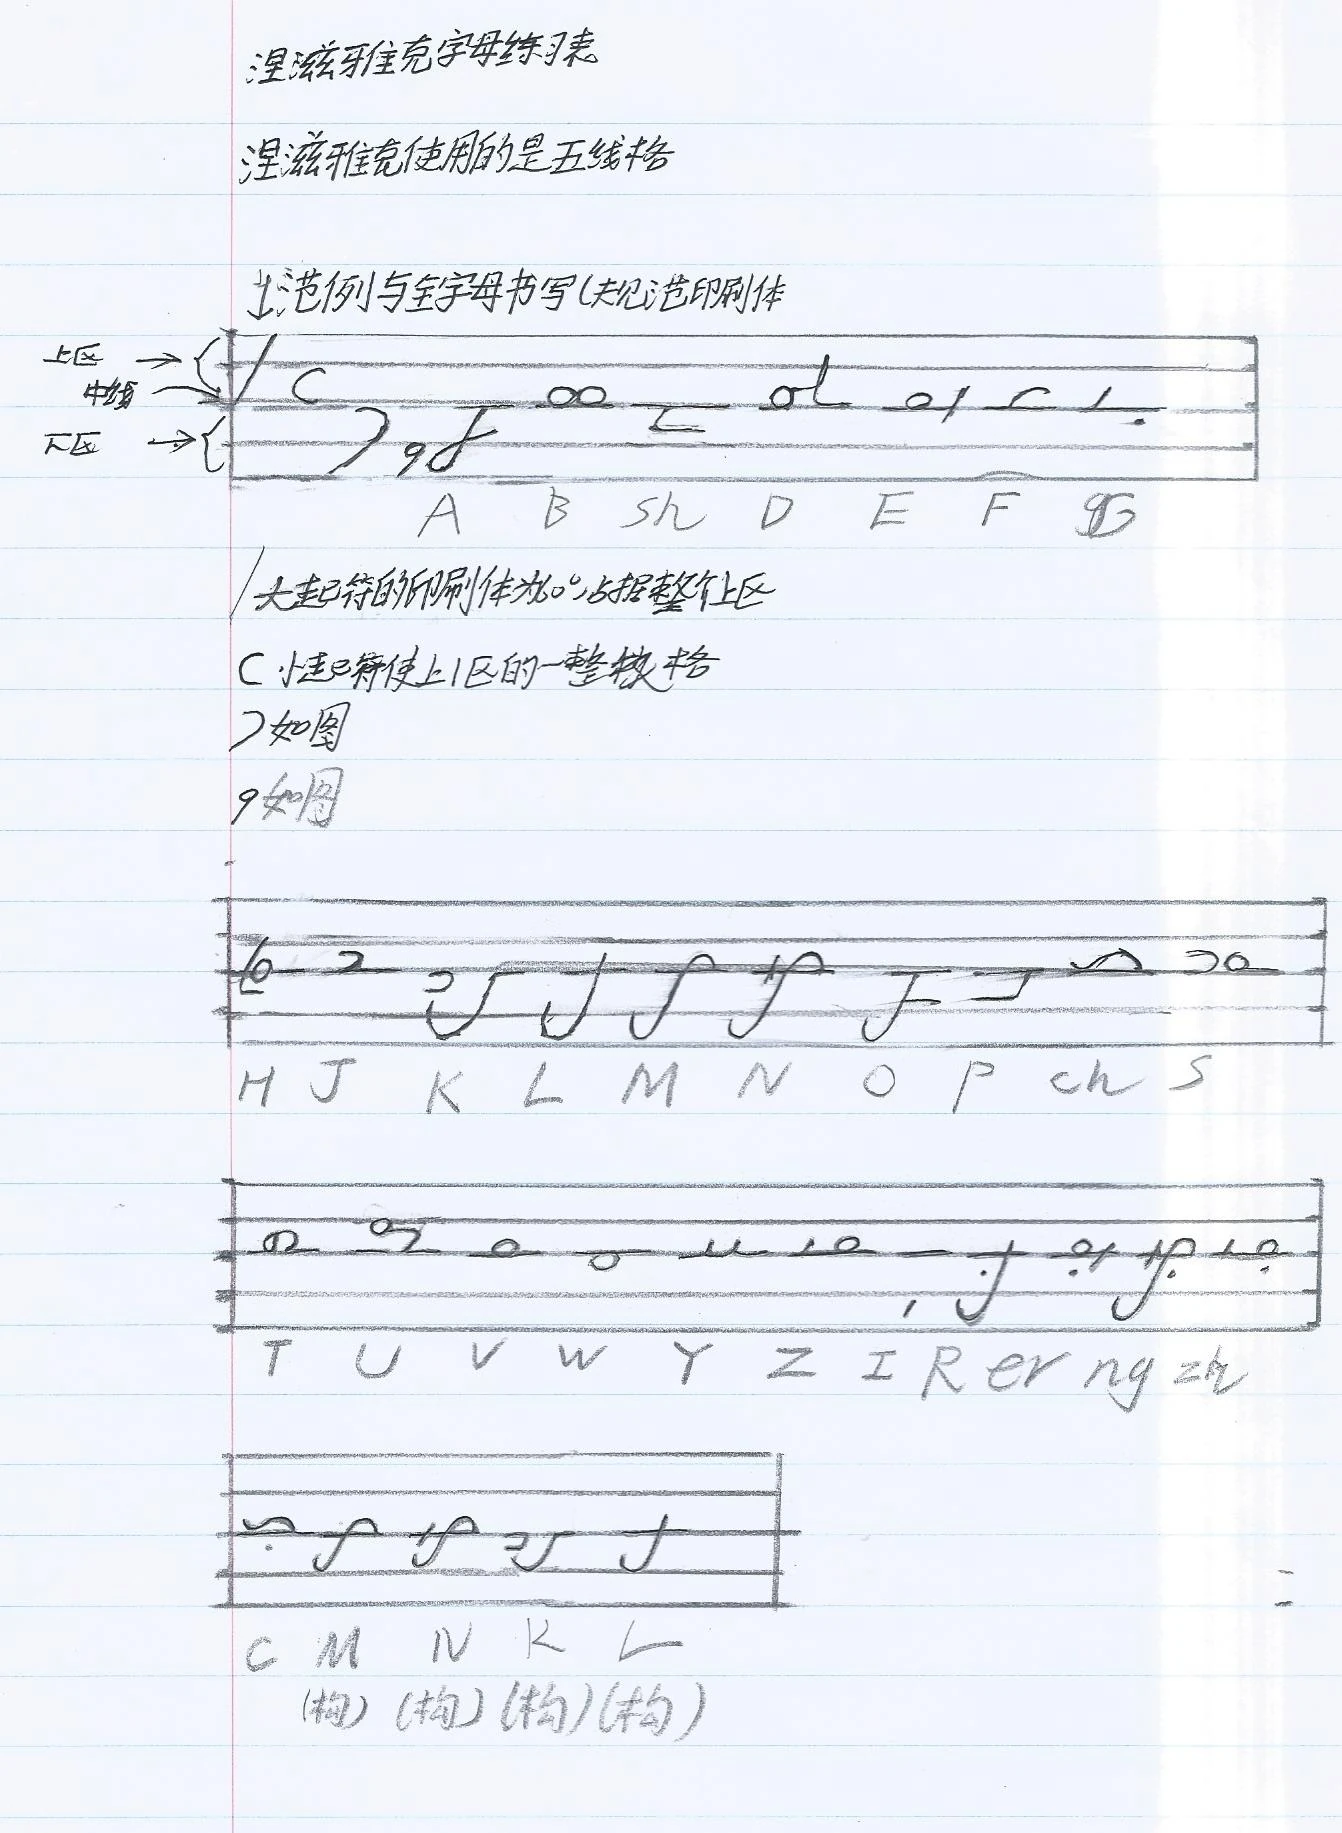 涅滋雅克字母练习表
涅滋雅克使用的是五线格
范例与全字母书写(规范印刷体
上区
中线
下区
A B Sh D E F G
/大起符的印刷体为60°,占据整个上区
C 小起符使上1区的一整格
如图
9如图
H J K L M N O P ch S
T U V W Y Z I R er ng zh
C M N K L
(构) (构) (构) (构)